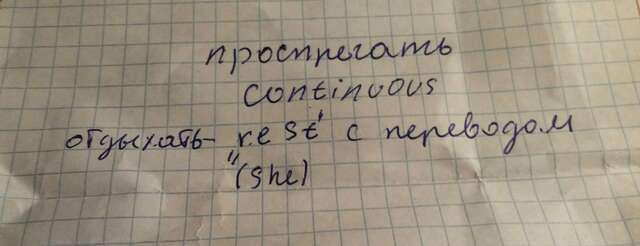 проспрегать
continuous
отдыхать- "rest" с переводом
(she)